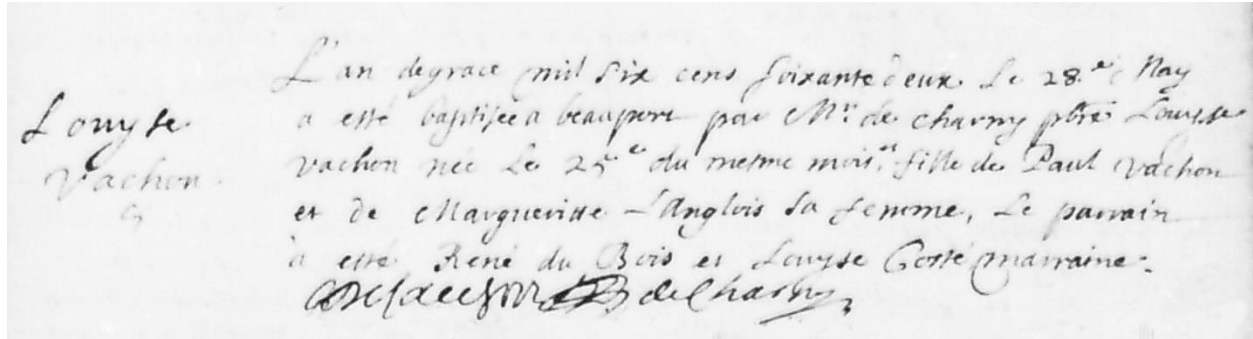 L'an de grace mil six cens soixante deux Le 28.e May
Louyse
a esté baptisée a beauport par Mr. de Charny pbre Louyse
Vachon
vachon née Le 25e du mesme mois. fille de Paul vachon
et de Margueritte L'Anglois sa femme, Le parrain
à esté René du Bois et Louyse Costé marraine.
de Charny